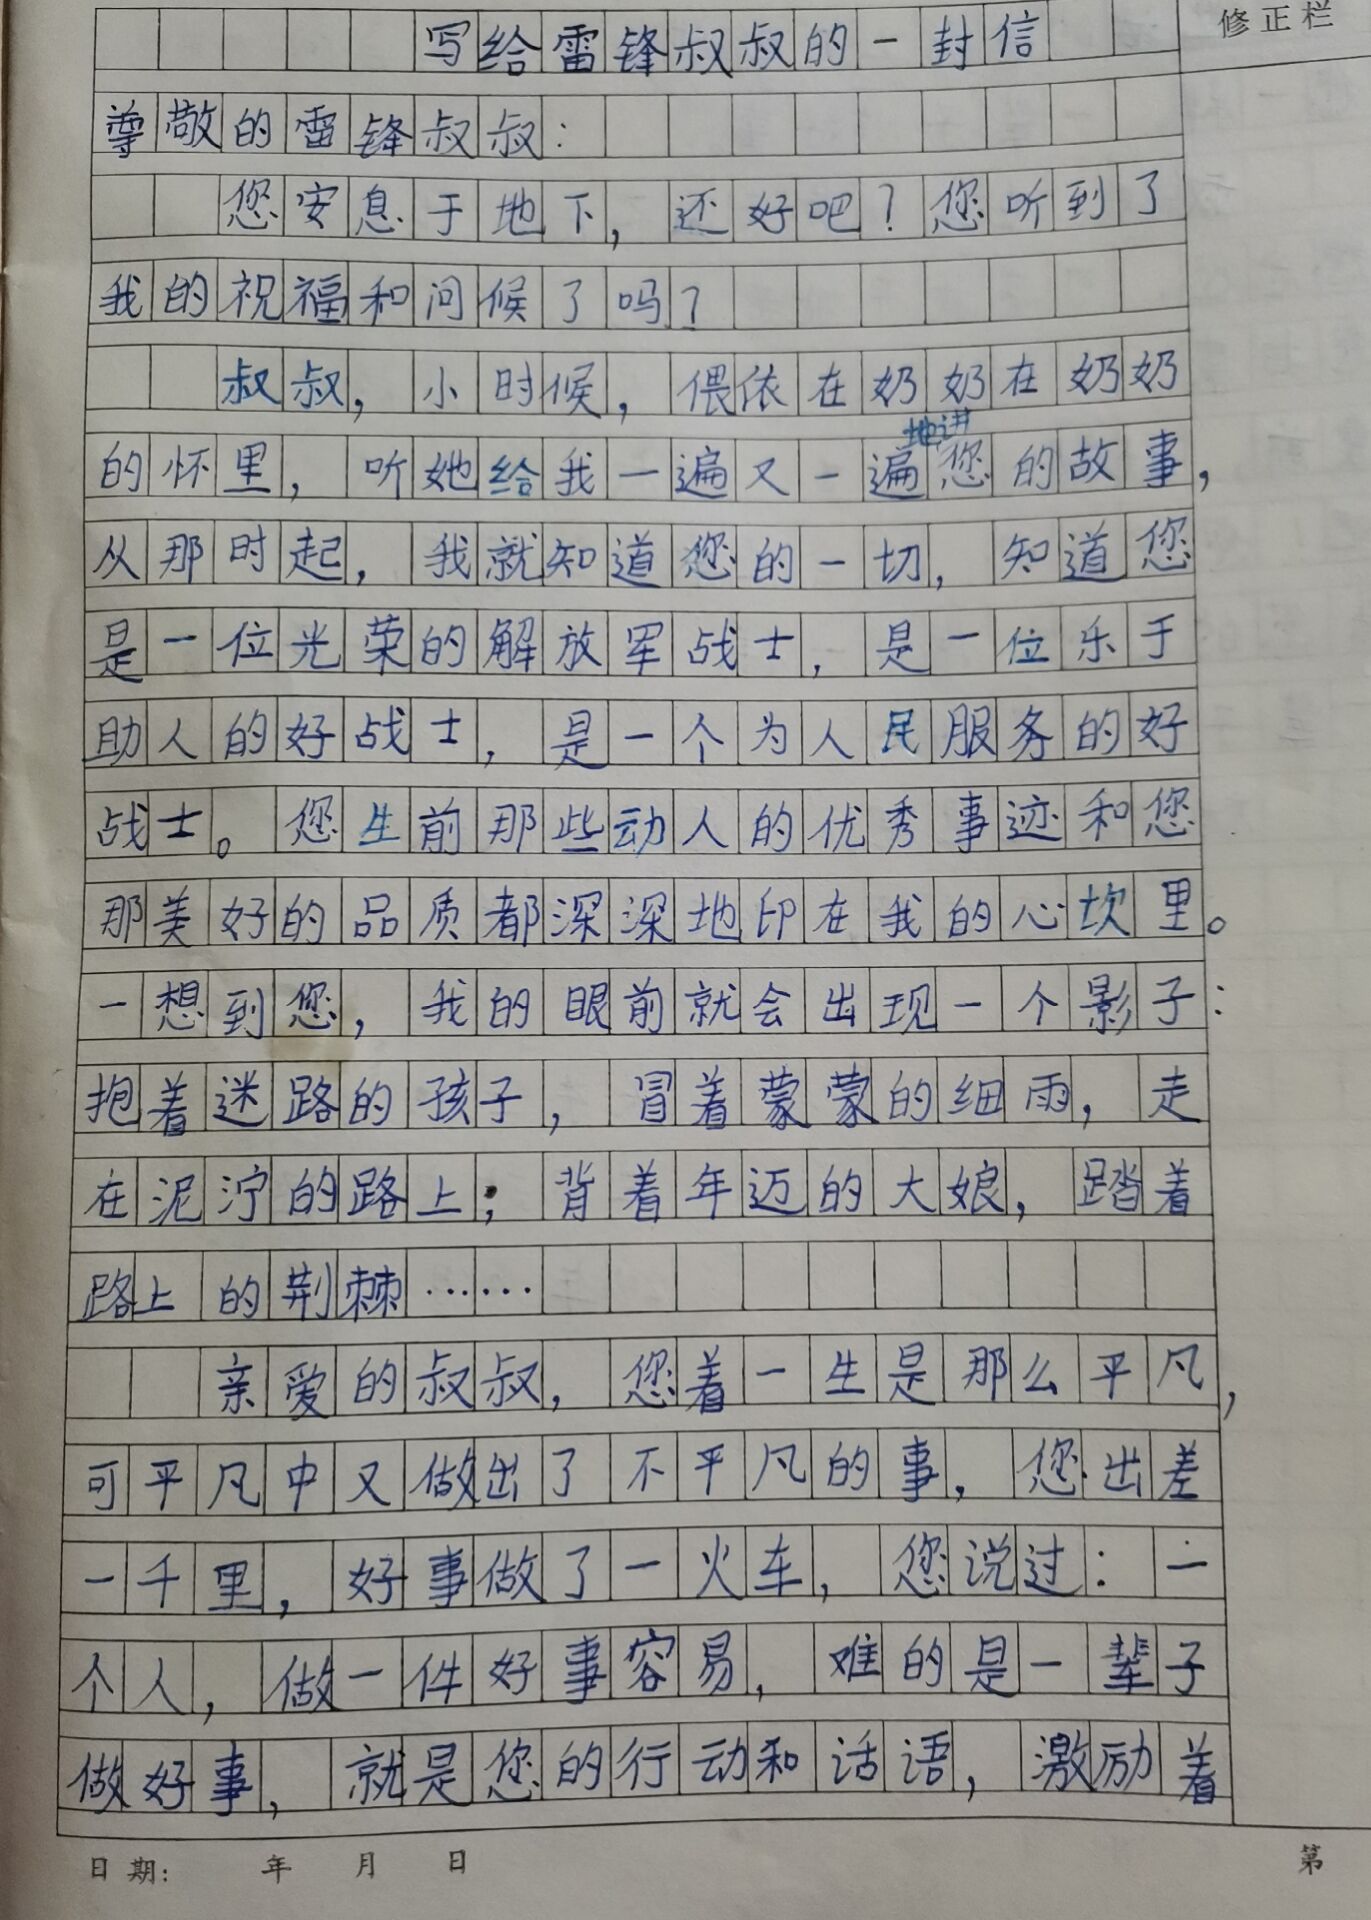 修正栏
写给雷锋叔叔的一封信
尊敬的雷锋叔叔：
您安息于地下，还好吧？您听到了
我的祝福和问候了吗？
叔叔，小时候，偎依在奶奶在奶奶
的怀里，听她给我一遍又一遍地讲您的故事，
从那时起，我就知道您的一切，知道您
是一位光荣的解放军战士，是一位乐于
助人的好战士，是一个为人民服务的好
战士。您生前那些动人的优秀事迹和您
那美好的品质都深深地印在我的心坎里。
一想到您，我的眼前就会出现一个影子：
抱着迷路的孩子，冒着蒙蒙的细雨，走
在泥泞的路上；背着年迈的大娘，踏着
路上的荆棘……
亲爱的叔叔，您着一生是那么平凡，
可平凡中又做出了不平凡的事，您出差
一千里，好事做了一火车，您说过：一
个人，做一件好事容易，难的是一辈子
做好事，就是您的行动和话语，激励着
日期：　年　月　日
第